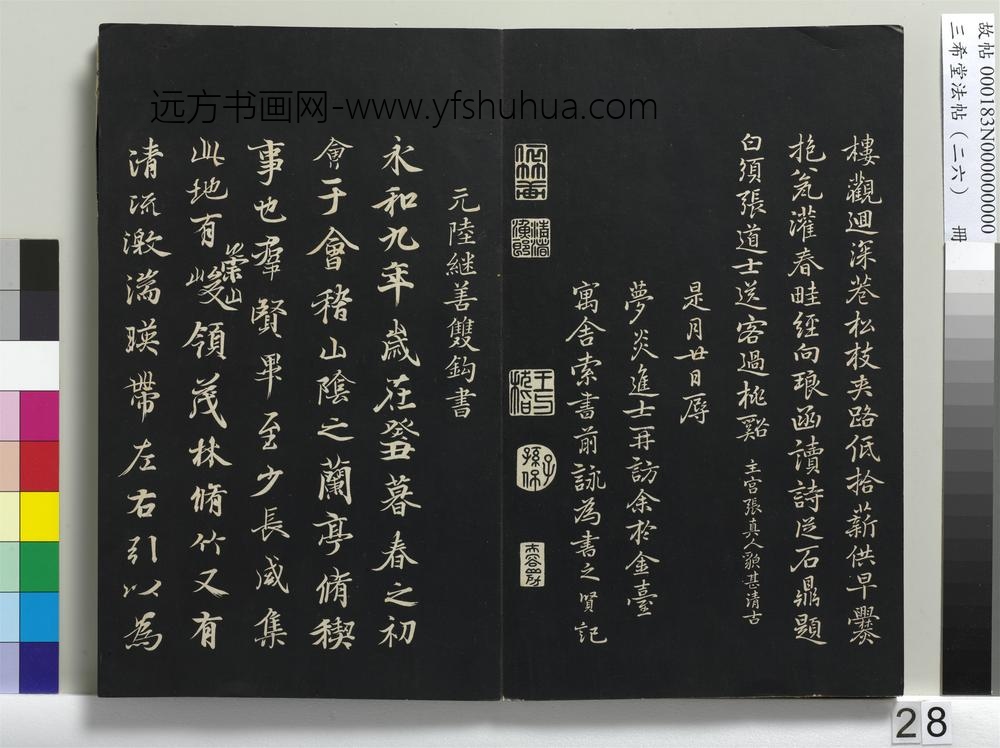 樓觀迴深巷松枝夾路低拾薪供早爨
抱瓮灌春畦經向琅函讀詩從石鼎題
白須張道士送客過桃谿 主宮張真人貌甚清古
是月廿日
夢炎進士再訪余於金臺
寓舍索書前詠為書之 賢記
元陸継善雙鈎書
永和九年歲在癸丑暮春之初
會于會稽山陰之蘭亭脩稧
事也羣賢畢至少長咸集
此地有崇山峻領茂林脩竹又有
清流激湍暎帶左右引以為
远方书画网-www.yfshuhua.com
故帖 000183N000000000
三希堂法帖（二六） 册
28